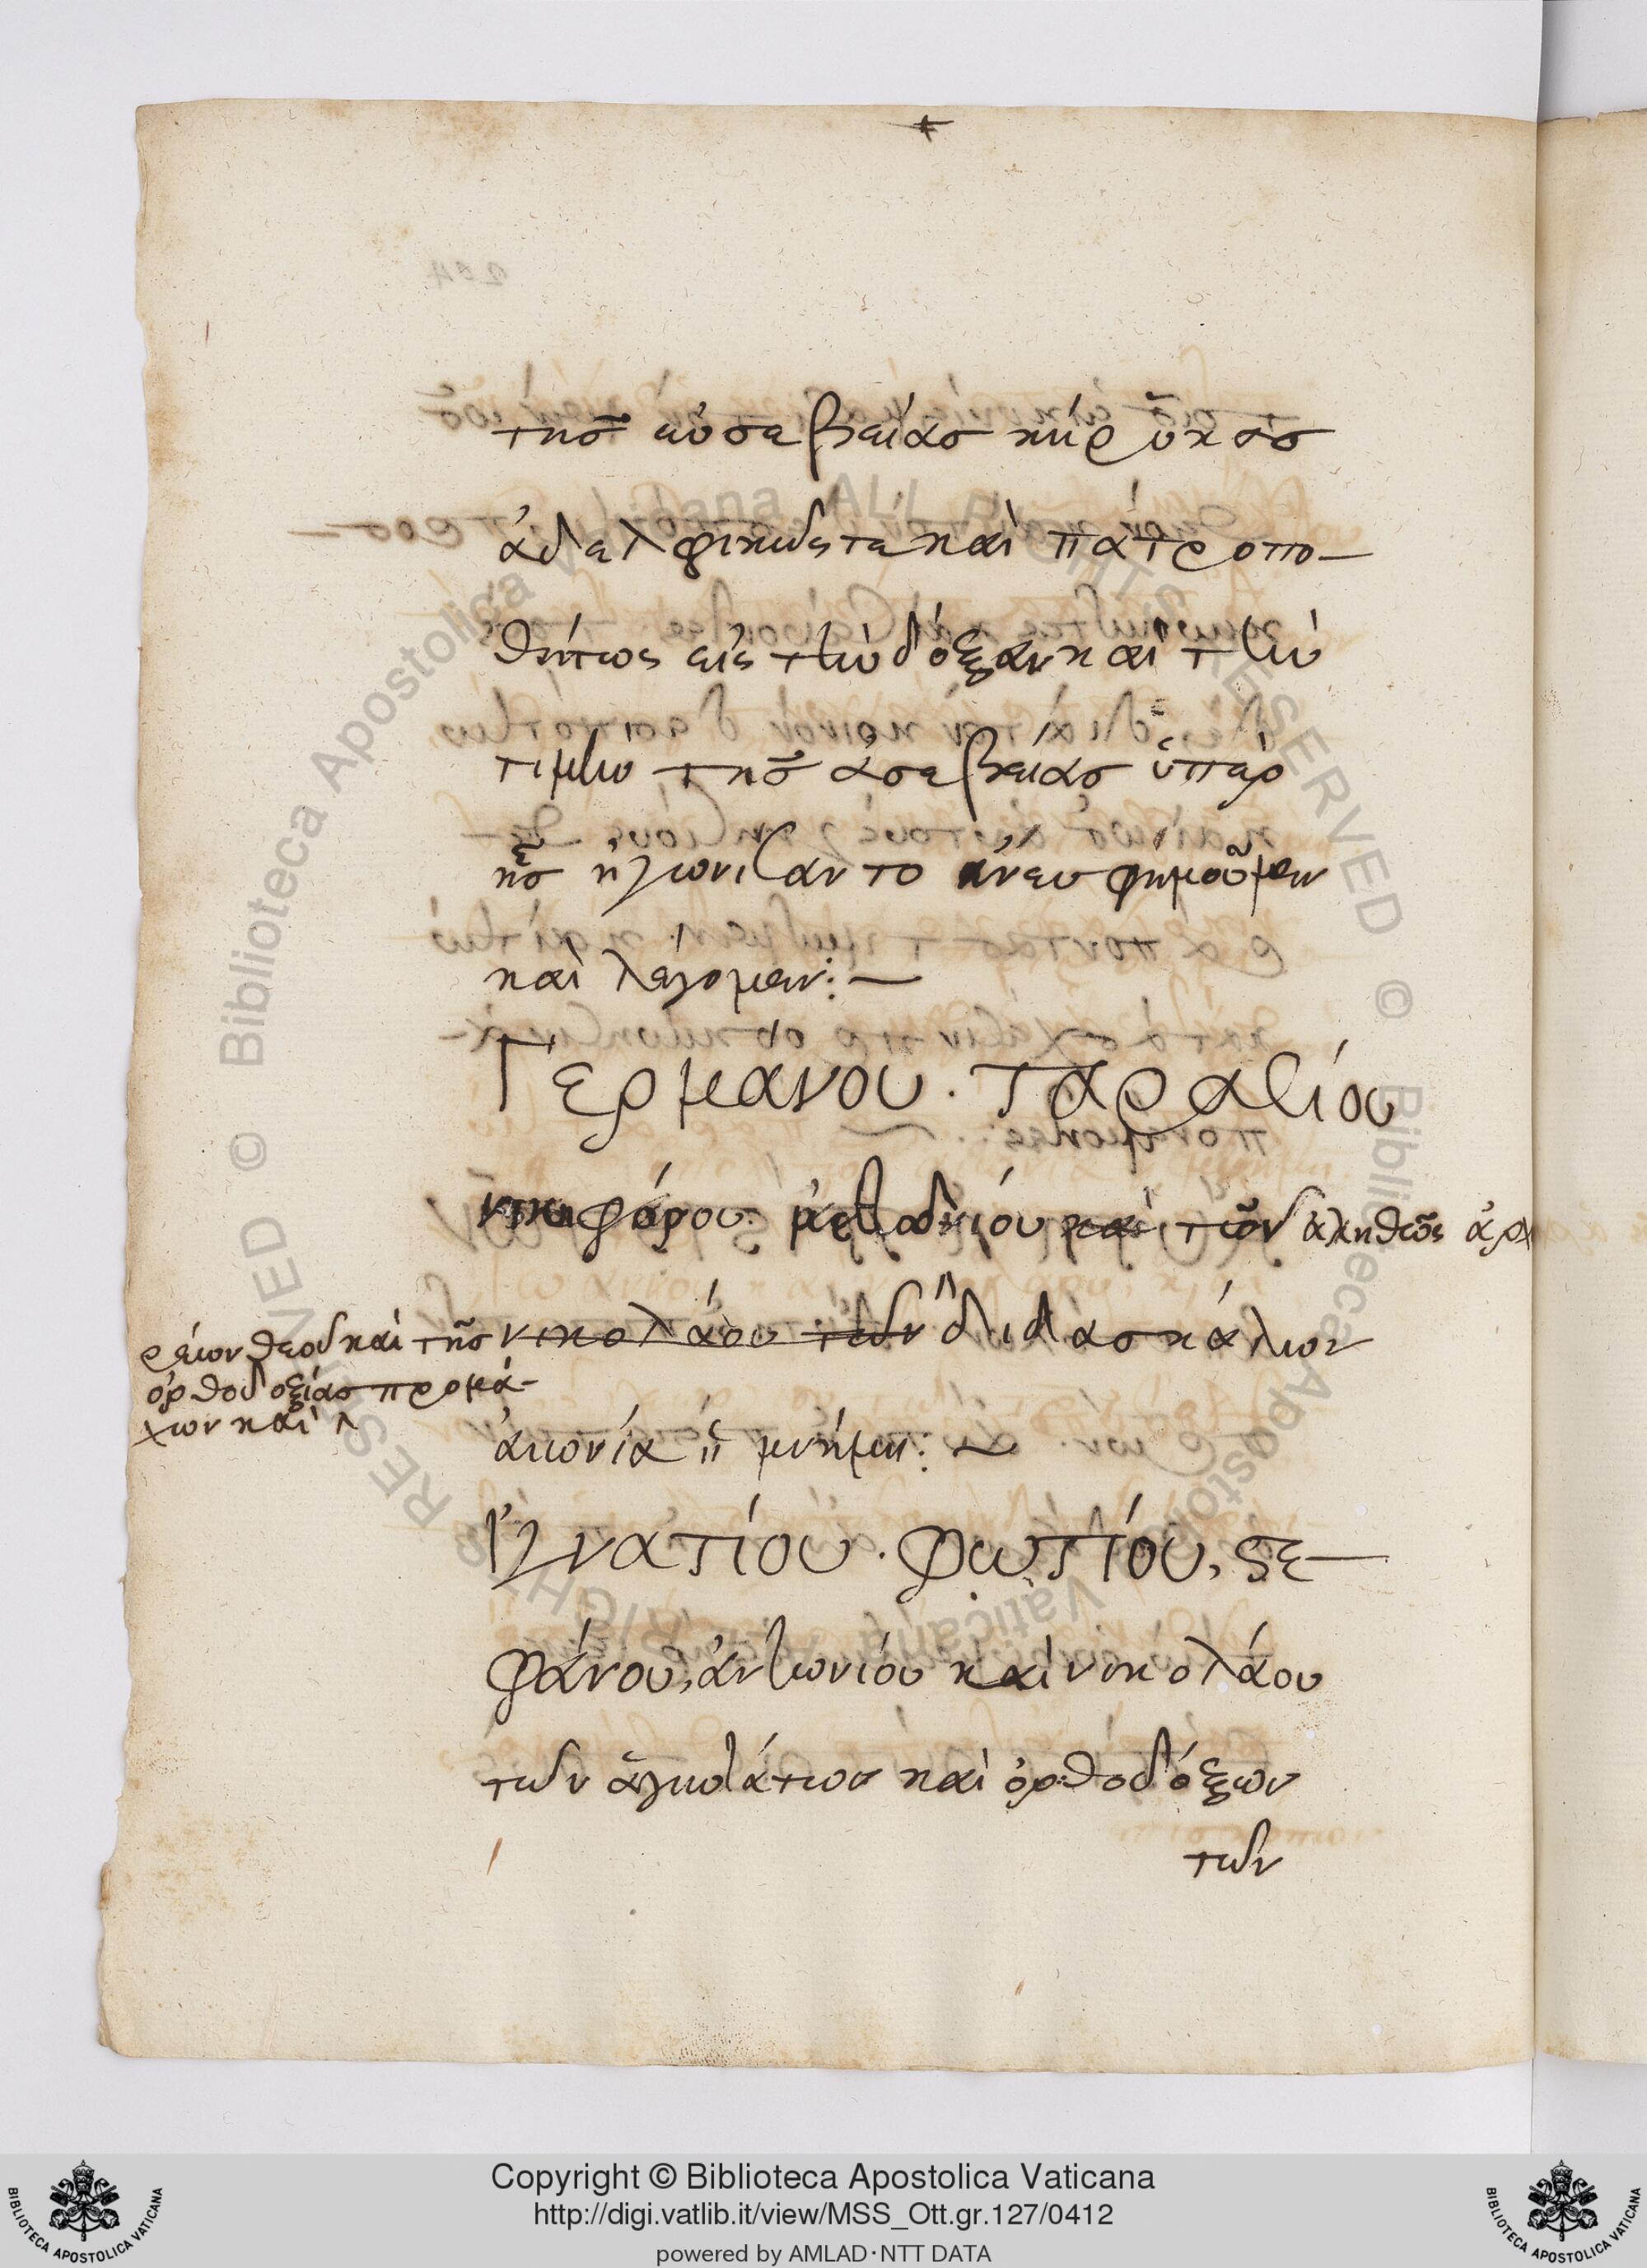 τῆς εὐσεβείας κήρυκας
ἀδελφικῶς τε καὶ πατροπο-
θήτως εἰς τὴν δόξαν καὶ τὴν
τιμὴν τῆς εὐσεβείας ὑπὲρ
ἧς ἠγωνίζαντο ἀνευφημοῦμεν
καὶ λέγομεν:—
Γερμανου. Ταρασίου
νικηφόρου. μεθοδίου καὶ τῶν ἀληθῶς ἀρχ
ρέων θεοῦ καὶ τῆς νικολάου τῶν διδασκάλων
ὀρθοδοξίας προμά-
χων καὶ
αἰωνία ἡ μνήμη:~
Ἰγνατίου. Φωτίου, Στε—
φάνου, ἀντωνίου καὶ νικολάου
τῶν ἁγιωτάτων καὶ ὀρθοδόξων
τῶν
Copyright © Biblioteca Apostolica Vaticana
http://digi.vatlib.it/view/MSS_Ott.gr.127/0412
powered by AMLAD·NTT DATA
BIBLIOTECA APOSTOLICA VATICANA
BIBLIOTECA APOSTOLICA VATICANA